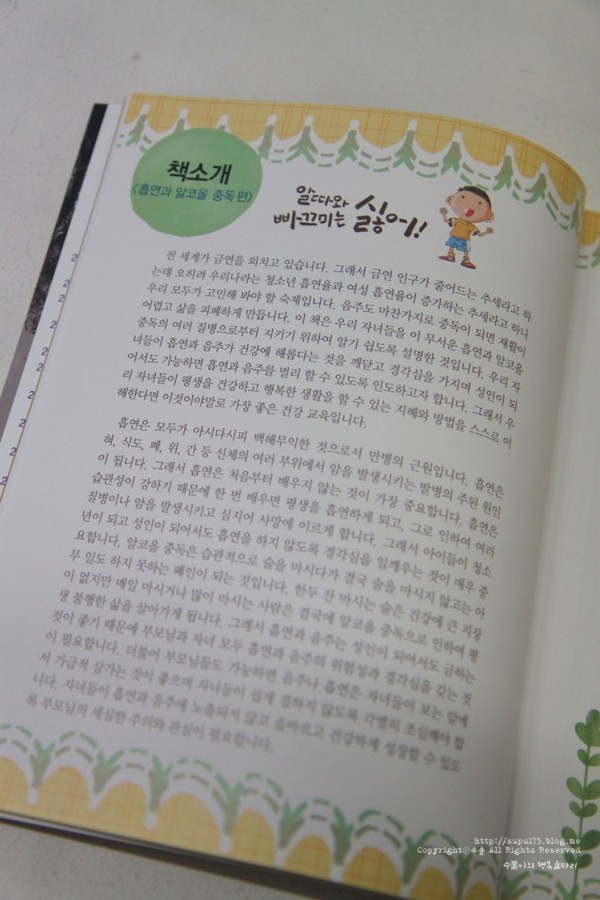 책소개
<흡연과 알코올 중독 편>
알따와
빠끄미는 싫어!
전 세계가 금연을 외치고 있습니다. 그래서 금연 인구가 줄어드는 추세라고 하
는데 오히려 우리나라는 청소년 흡연율과 여성 흡연율이 증가하는 추세라고 하니
우리 모두가 고민해 봐야 할 숙제입니다. 음주도 마찬가지로 중독이 되면 재활이
어렵고 삶을 피폐하게 만듭니다. 이 책은 우리 자녀들을 이 무서운 흡연과 알코올
중독의 여러 질병으로부터 지키기 위하여 알기 쉽도록 설명한 것입니다. 우리 자
녀들이 흡연과 음주가 건강에 해롭다는 것을 깨닫고 경각심을 가지며 성인이 되
어서도 가능하면 흡연과 음주를 멀리 할 수 있도록 인도하고자 합니다. 그래서 우
리 자녀들이 평생을 건강하고 행복한 생활을 할 수 있는 지혜와 방법을 스스로 이
해한다면 이것이야말로 가장 좋은 건강 교육입니다.
흡연은 모두가 아시다시피 백해무익한 것으로서 만병의 근원입니다. 흡연은
혀, 식도, 폐, 위, 간 등 신체의 여러 부위에서 암을 발생시키는 발병의 주된 원인
이 됩니다. 그래서 흡연은 처음부터 배우지 않는 것이 가장 중요합니다. 흡연은
습관성이 강하기 때문에 한 번 배우면 평생을 흡연하게 되고, 그로 인하여 여러
질병이나 암을 발생시키고 심지어 사망에 이르게 합니다. 그래서 아이들이 청소
년이 되고 성인이 되어서도 흡연을 하지 않도록 경각심을 일깨우는 것이 매우 중
요합니다. 알코올 중독은 습관적으로 술을 마시다가 결국 술을 마시지 않고는 아
무 일도 하지 못하는 폐인이 되는 것입니다. 한두 잔 마시는 술은 건강에 큰 지장
이 없지만 매일 마시거나 많이 마시는 사람은 결국에 알코올 중독으로 인하여 평
생 불행한 삶을 살아가게 됩니다. 그래서 흡연과 음주는 성인이 되어서도 금하는
것이 좋기 때문에 부모님과 자녀 모두 흡연과 음주의 위험성과 경각심을 갖는 것
이 필요합니다. 더불어 부모님들도 가능하면 음주나 흡연은 자녀들이 보는 앞에
서 가급적 삼가는 것이 좋으며 자녀들이 쉽게 접하지 않도록 각별히 조심해야 합
니다. 자녀들이 흡연과 음주에 노출되지 않고 올바르고 건강하게 성장할 수 있도
록 부모님의 세심한 주의와 관심이 필요합니다.
2
2
2
2
2
2
2
2
2
http://supul75.blog.me
Copyrightⓒ수풀 All Rights Reserved
수풀이의 행복울타리